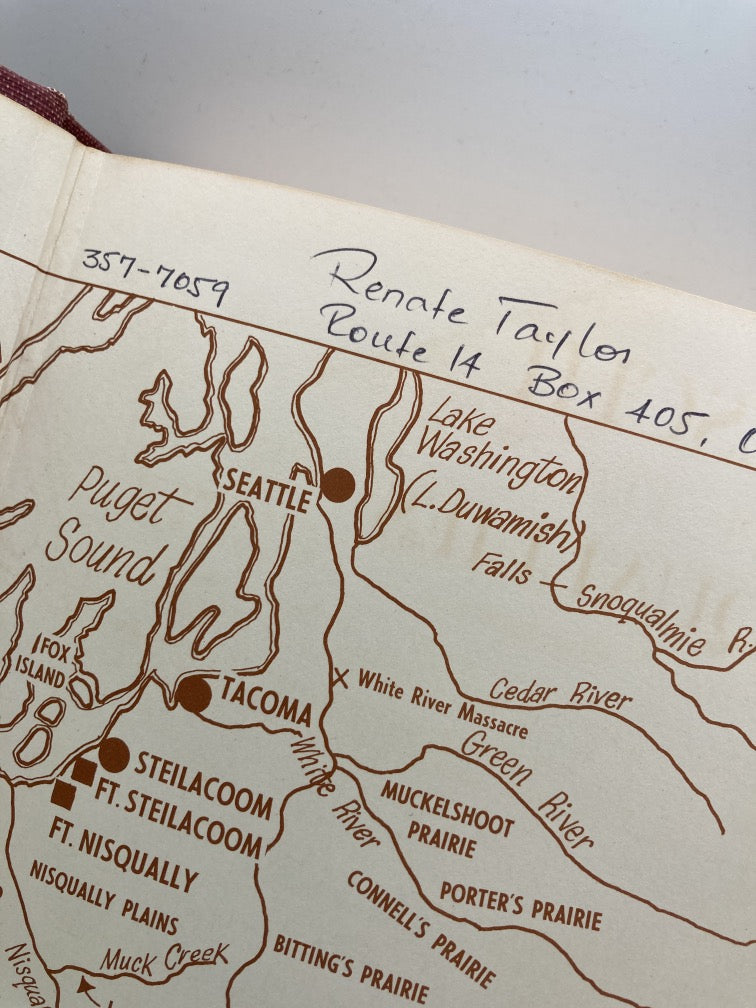 357-7059
Renate Taylor
Route 14 Box 405,
Lake
Washington
(L. Duwamish)
SEATTLE
Puget
Sound
Falls
Snoqualmie R.
FOX
ISLAND
TACOMA
White River Massacre
Cedar River
Green River
White River
STEILACOOM
FT. STEILACOOM
FT. NISQUALLY
MUCKELSHOOT
PRAIRIE
NISQUALLY PLAINS
CONNELL'S PRAIRIE
PORTER'S PRAIRIE
Muck Creek
BITTING'S PRAIRIE